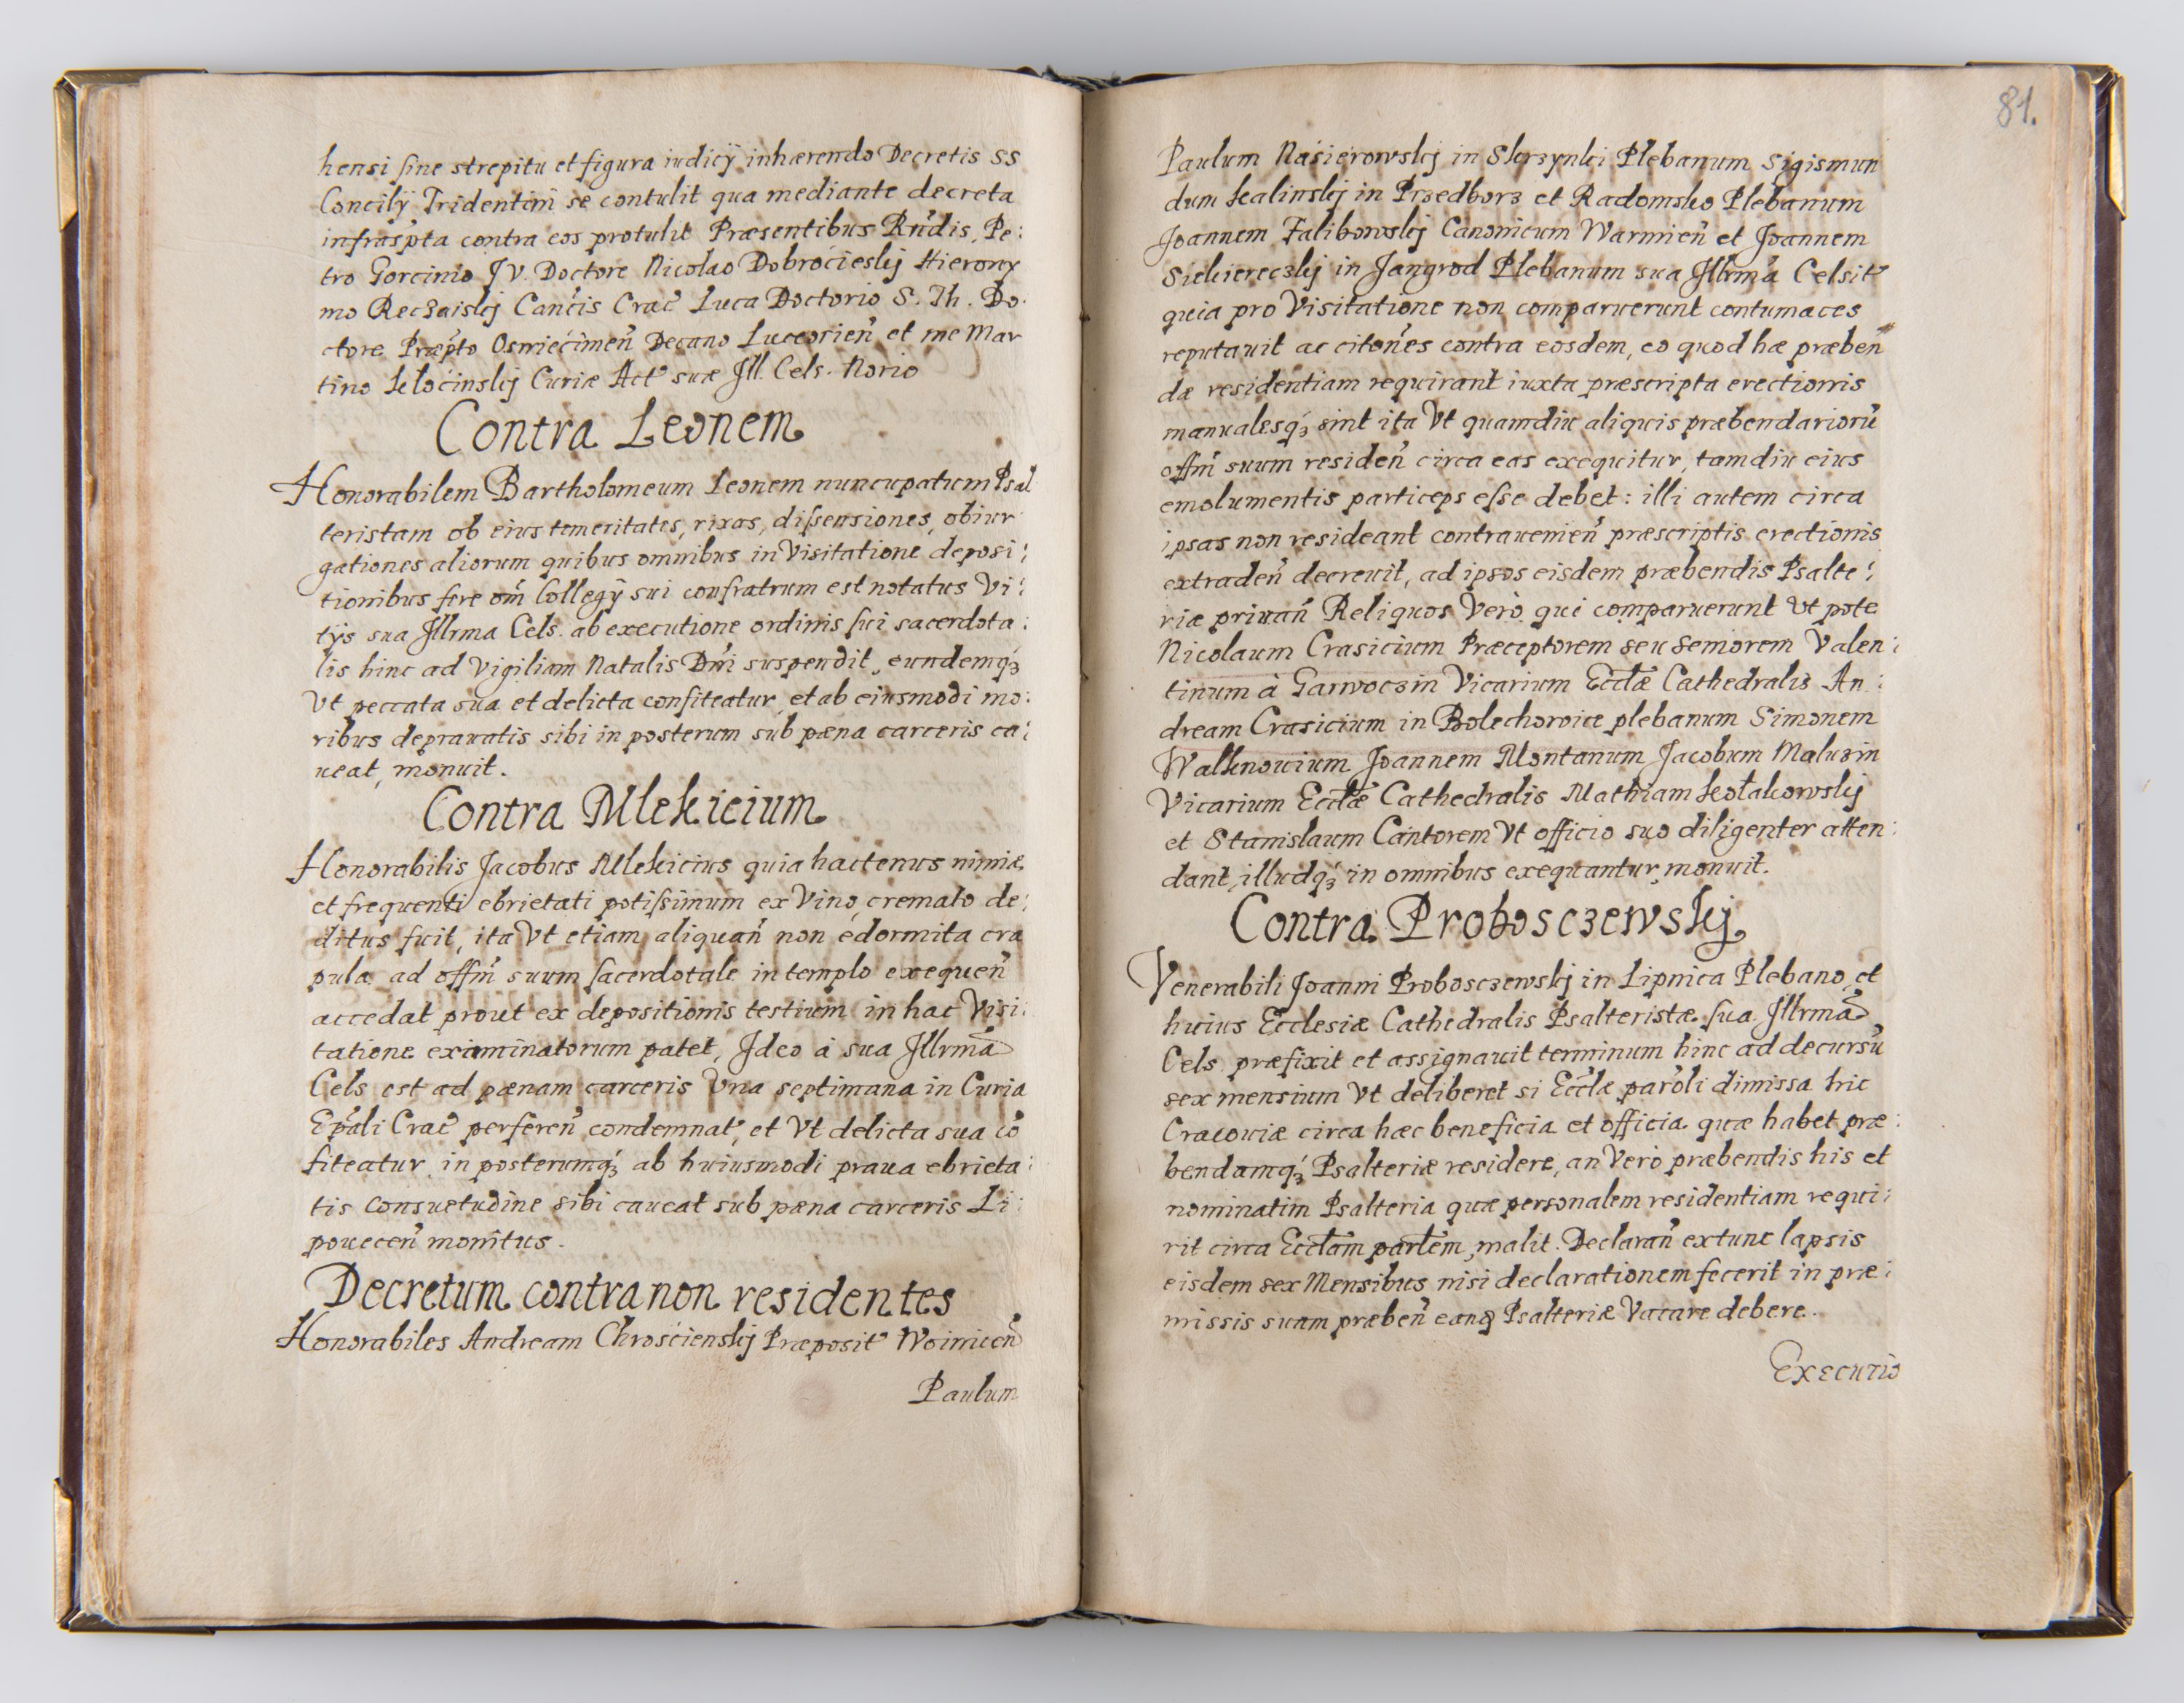 hensi sine strepitu et figura iudicÿ inhærendo Decretis SS
Concilÿ Tridentini se contulit qua mediante decreta
infraspta contra eos protulit Præsentibus Rndis, Pe:
tro Gorcinio J V. Doctore Nicolao Dobrocieskÿ Hierony
mo Reczaiskÿ Cancis Crac Luca Doctorio S. Th. Do:
ctore Præpto Oswiécimeñ Decano Luceorieñ et me Mar
tino Kłocinskÿ Curiæ Act suæ Jll. Cels. Norio
Contra Leonem
Honorabilem Bartholomeum Leonem nuncupatum Psal
teristam ob eius temeritates, rixas, dissensiones, obiur
gationes aliorum quibus omnibus in Visitatione deposi:
tionibus fere om̃ Collegÿ sui confratrum est notatus Vi:
tÿs sua Jllrma Cels. ab executione ordinis sui sacerdota:
lis hinc ad Vigiliam Natalis Dni suspendit, eundemq́ꝫ
Vt peccata sua et delicta confiteatur, et ab eiusmodi mo:
ribus deprauatis sibi in posterum sub pæna carceris ca:
ueat, monuit.
Contra Mlekicium
Honorabilis Jacobus Mlekicius quia hactenus nimiæ
et frequenti ebrietati potissimum ex Vino cremato de:
ditus fuit, ita Vt etiam aliquañ non edormita cra
pula ad offm̃ suum sacerdotale in templo exequeñ
accedat prout ex depositionis testium in hac Visi:
tatione examinatorum patet, Jdeo à sua Jllrma
Cels est ad pænam carceris Vna septimana in Curia
Epali Crac̃ perfereñ condemnat, et Vt delicta sua cõ
fiteatur in posterumq́ꝫ ab huiusmodi praua ebrieta:
tis consuetudine sibi caueat sub pæna carceris Li:
poueceñ monitus.
Decretum contra non residentes
Honorabiles Andream Chrościenskÿ Præposit Woiniceñ
Paulum
81.
Paulum Nasierowskÿ in Skrzynki Plebanum Sigismun
dum Kalinskÿ in Przedborz et Radomsko Plebanum
Joannem Falibowskÿ Canonicum Warmieñ et Joannem
Siekiereczkÿ in Jangrod Plebanum sua Jllrma Celsit
quia pro Visitatione non comparuerunt contumaces
reputauit ac citones contra eosdem, eo quod hæ præbeñ
dæ residentiam requirant iuxta præscripta erectionis
manualesq́ꝫ sint ita Vt quamdiu aliquis præbendariorũ
offm̃ suum resideñ circa eas exequitur, tamdiu eius
emolumentis particeps esse debet: illi autem circa
ipsas non resideant contraueniеñ præscriptis erectionis
extradeñ decreuit, ad ipsos eisdem præbendis Psalte:
riæ priuañ Reliquos Verò qui comparuerunt Vt pote
Nicolaum Crasicium Præceptorem seu Seniorem Valen:
tinum à Garwoczin Vicarium Ecclæ Cathedralis An:
dream Crasicium in Bolechowice plebanum Simonem
Walknouium Joannem Montanum Jacobum Maluzin
Vicarium Ecclæ Cathedralis Mathiam Kołakowskÿ
et Stanislaum Cantorem Vt officio suo diligenter atten:
dant, illudq́ꝫ in omnibus exequantur, monuit.
Contra Probosczewskÿ
Venerabili Joanni Probosczewskÿ in Lipnica Plebano, et
huius Ecclesiæ Cathedralis Psalteristæ sua Jllrma
Cels præfixit et assignauit terminum hinc ad decursũ
sex mensium Vt deliberet si Eccla paroli dimissa hic
Cracouiæ circa hæc beneficia et officia quæ habet præ:
bendamq́ꝫ Psalteriæ residere, an Verò præbendis his et
nominatim Psalteria quæ personalem residentiam requi:
rit circa Ecclam parlem, malit. Declarañ extunc lapsis
eisdem sex Mensibus nisi declarationem fecerit in præ:
missis suam præbeñ eanꝗ Psalteriæ Vacare debere.
Executio